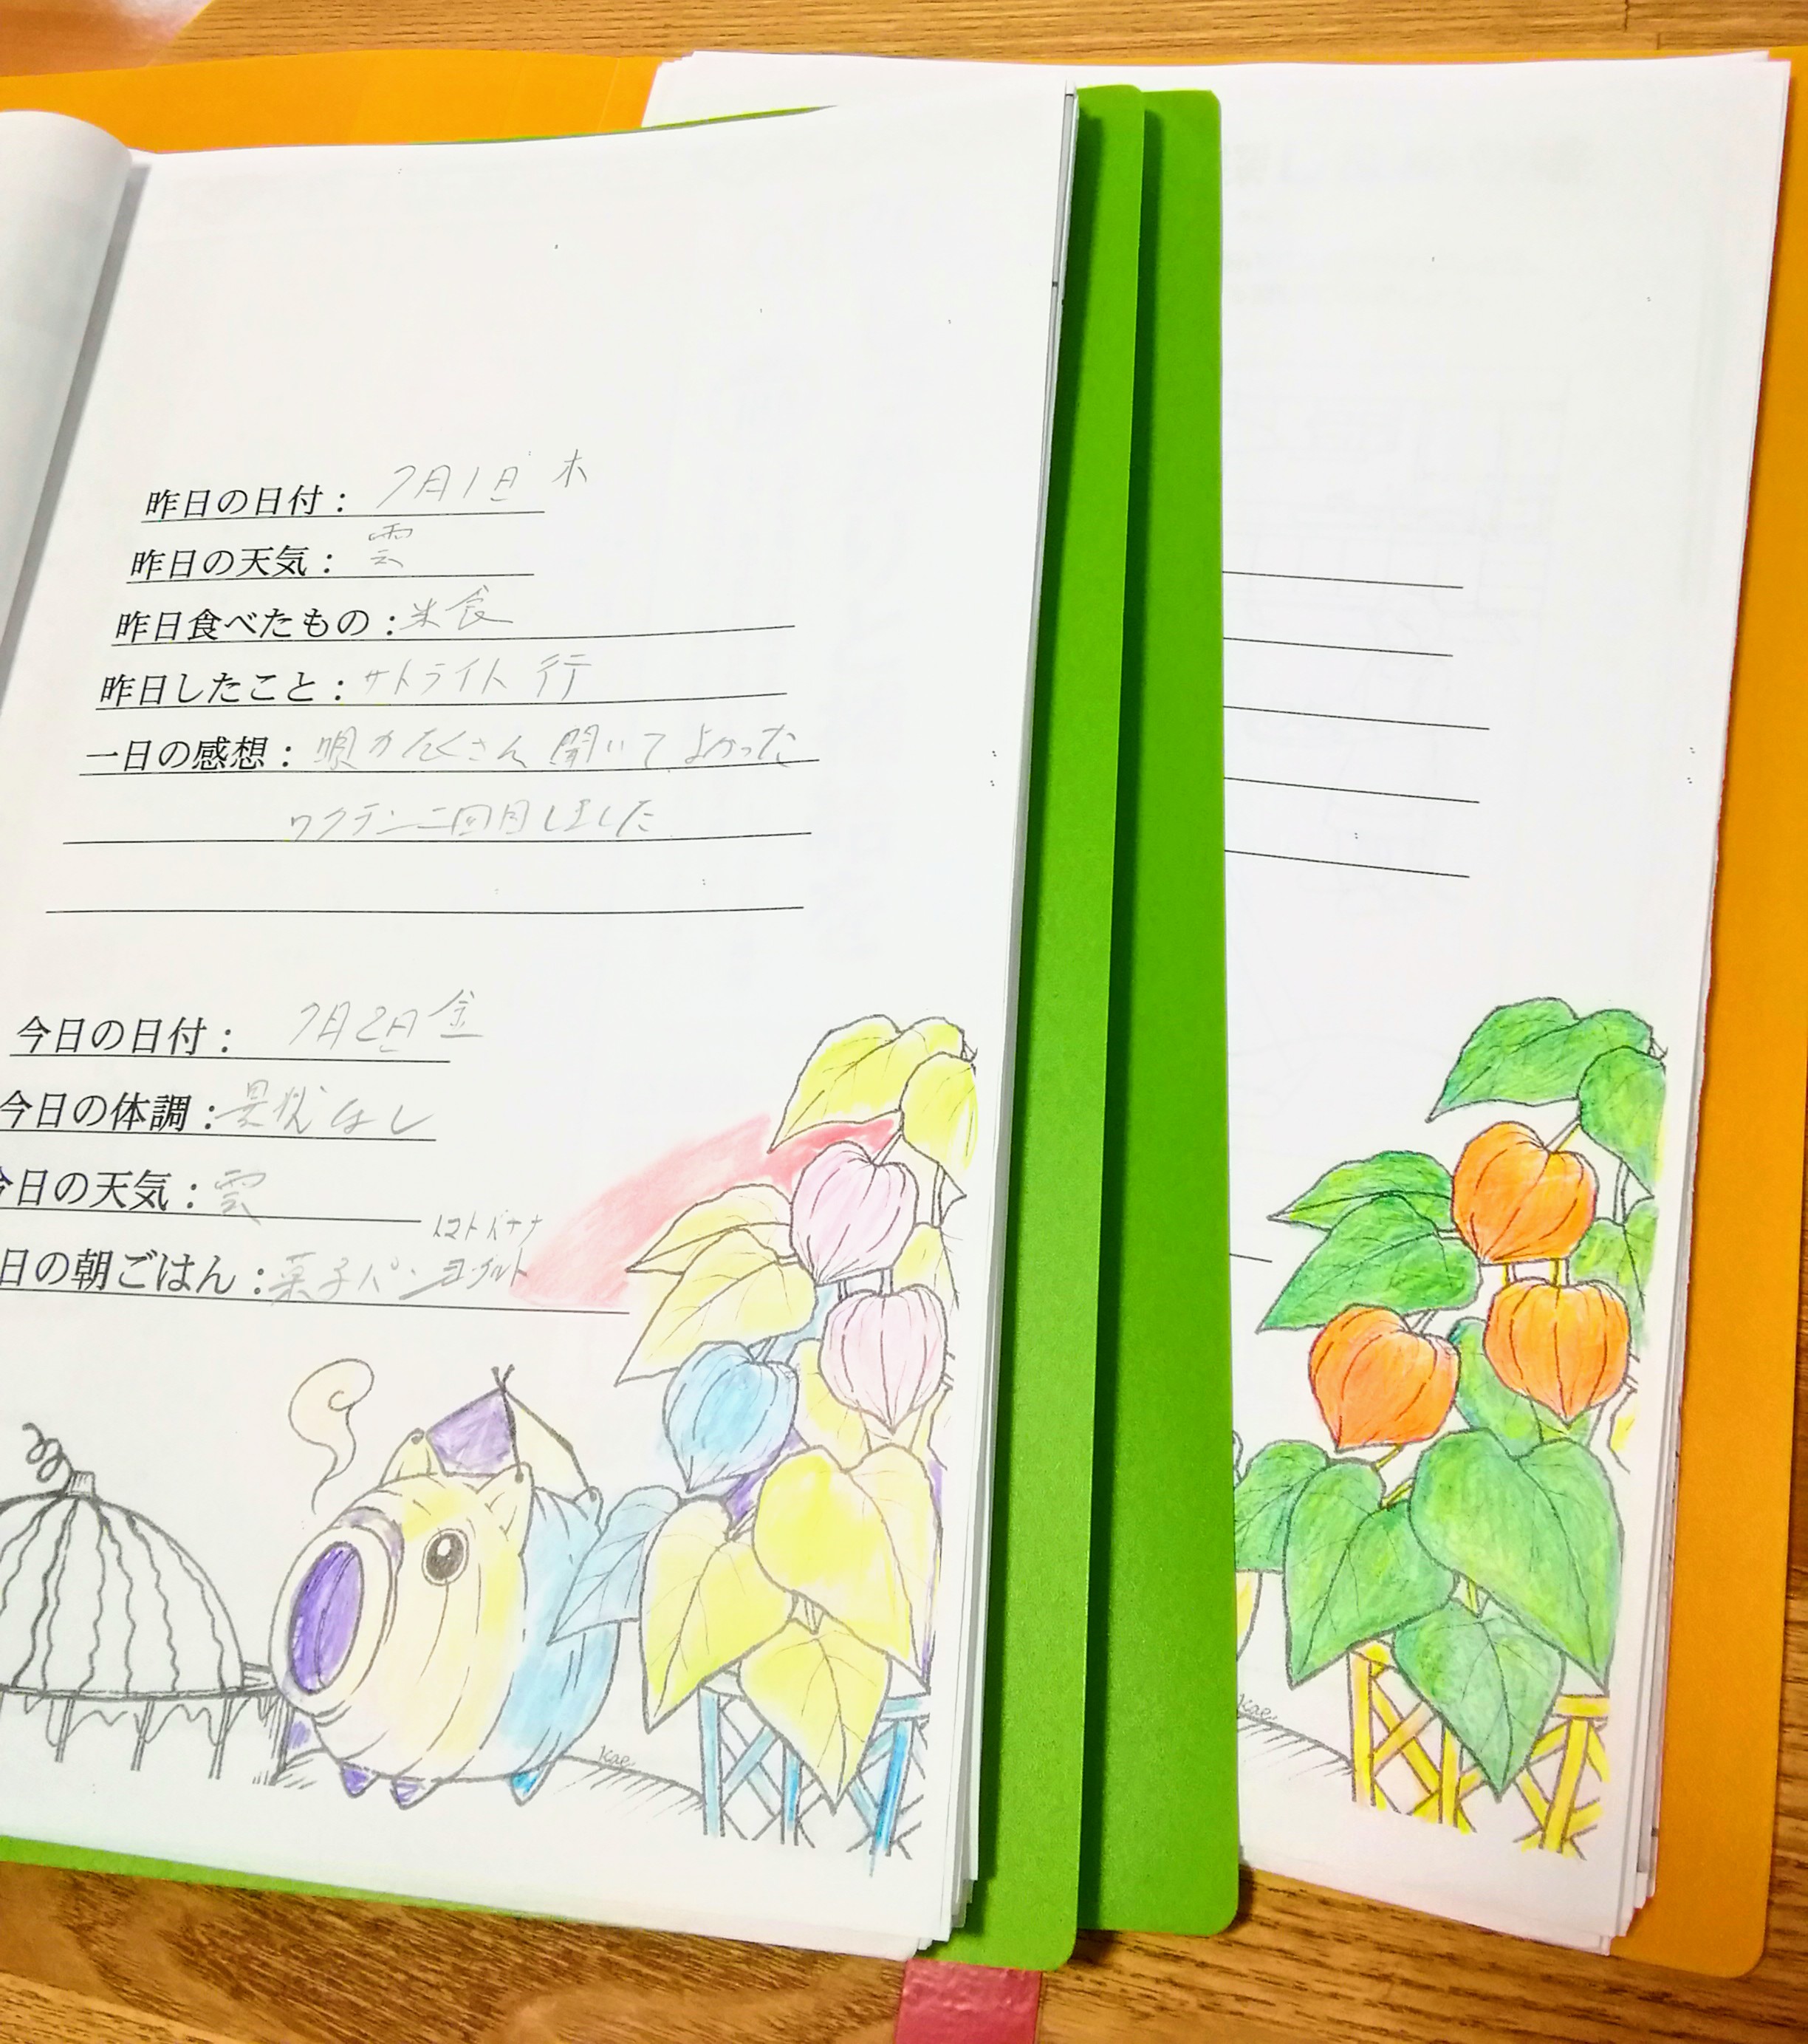 昨日の日付： 7月1日 木
昨日の天気： 雲
昨日食べたもの：米食
昨日したこと：サトライト 行
一日の感想： 唄がたくさん 聞いて よかった
ワクチン二回目しました
今日の日付： 7月2日 金
今日の体調：異状なし
今日の天気：雲
トマト バナナ
日の朝ごはん：菓子パン ヨーグルト
Kae
Kae